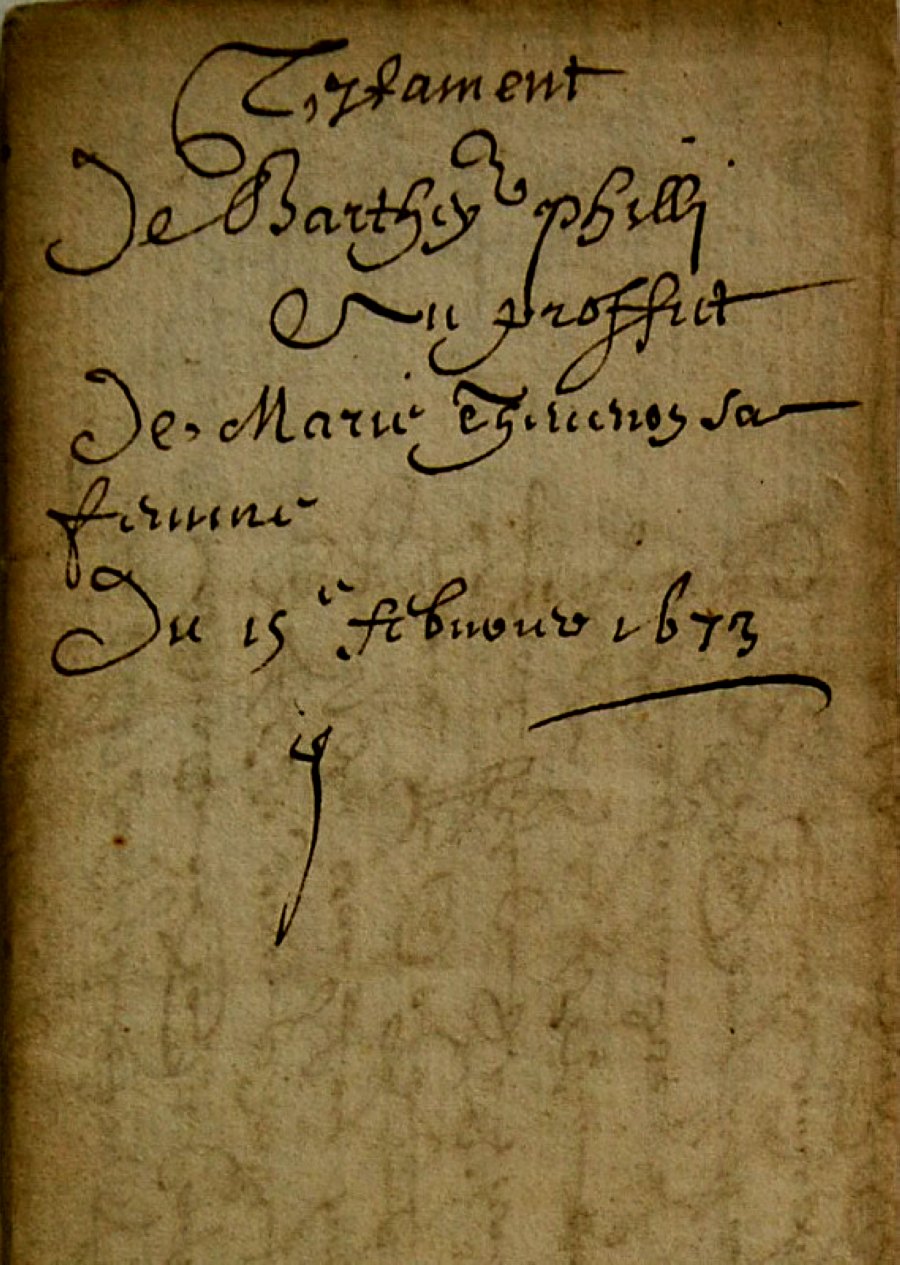 Testament
De Barthey phillj
Au proffict
De Marie Thevenoz sa
femme
Du 15e februour 1673